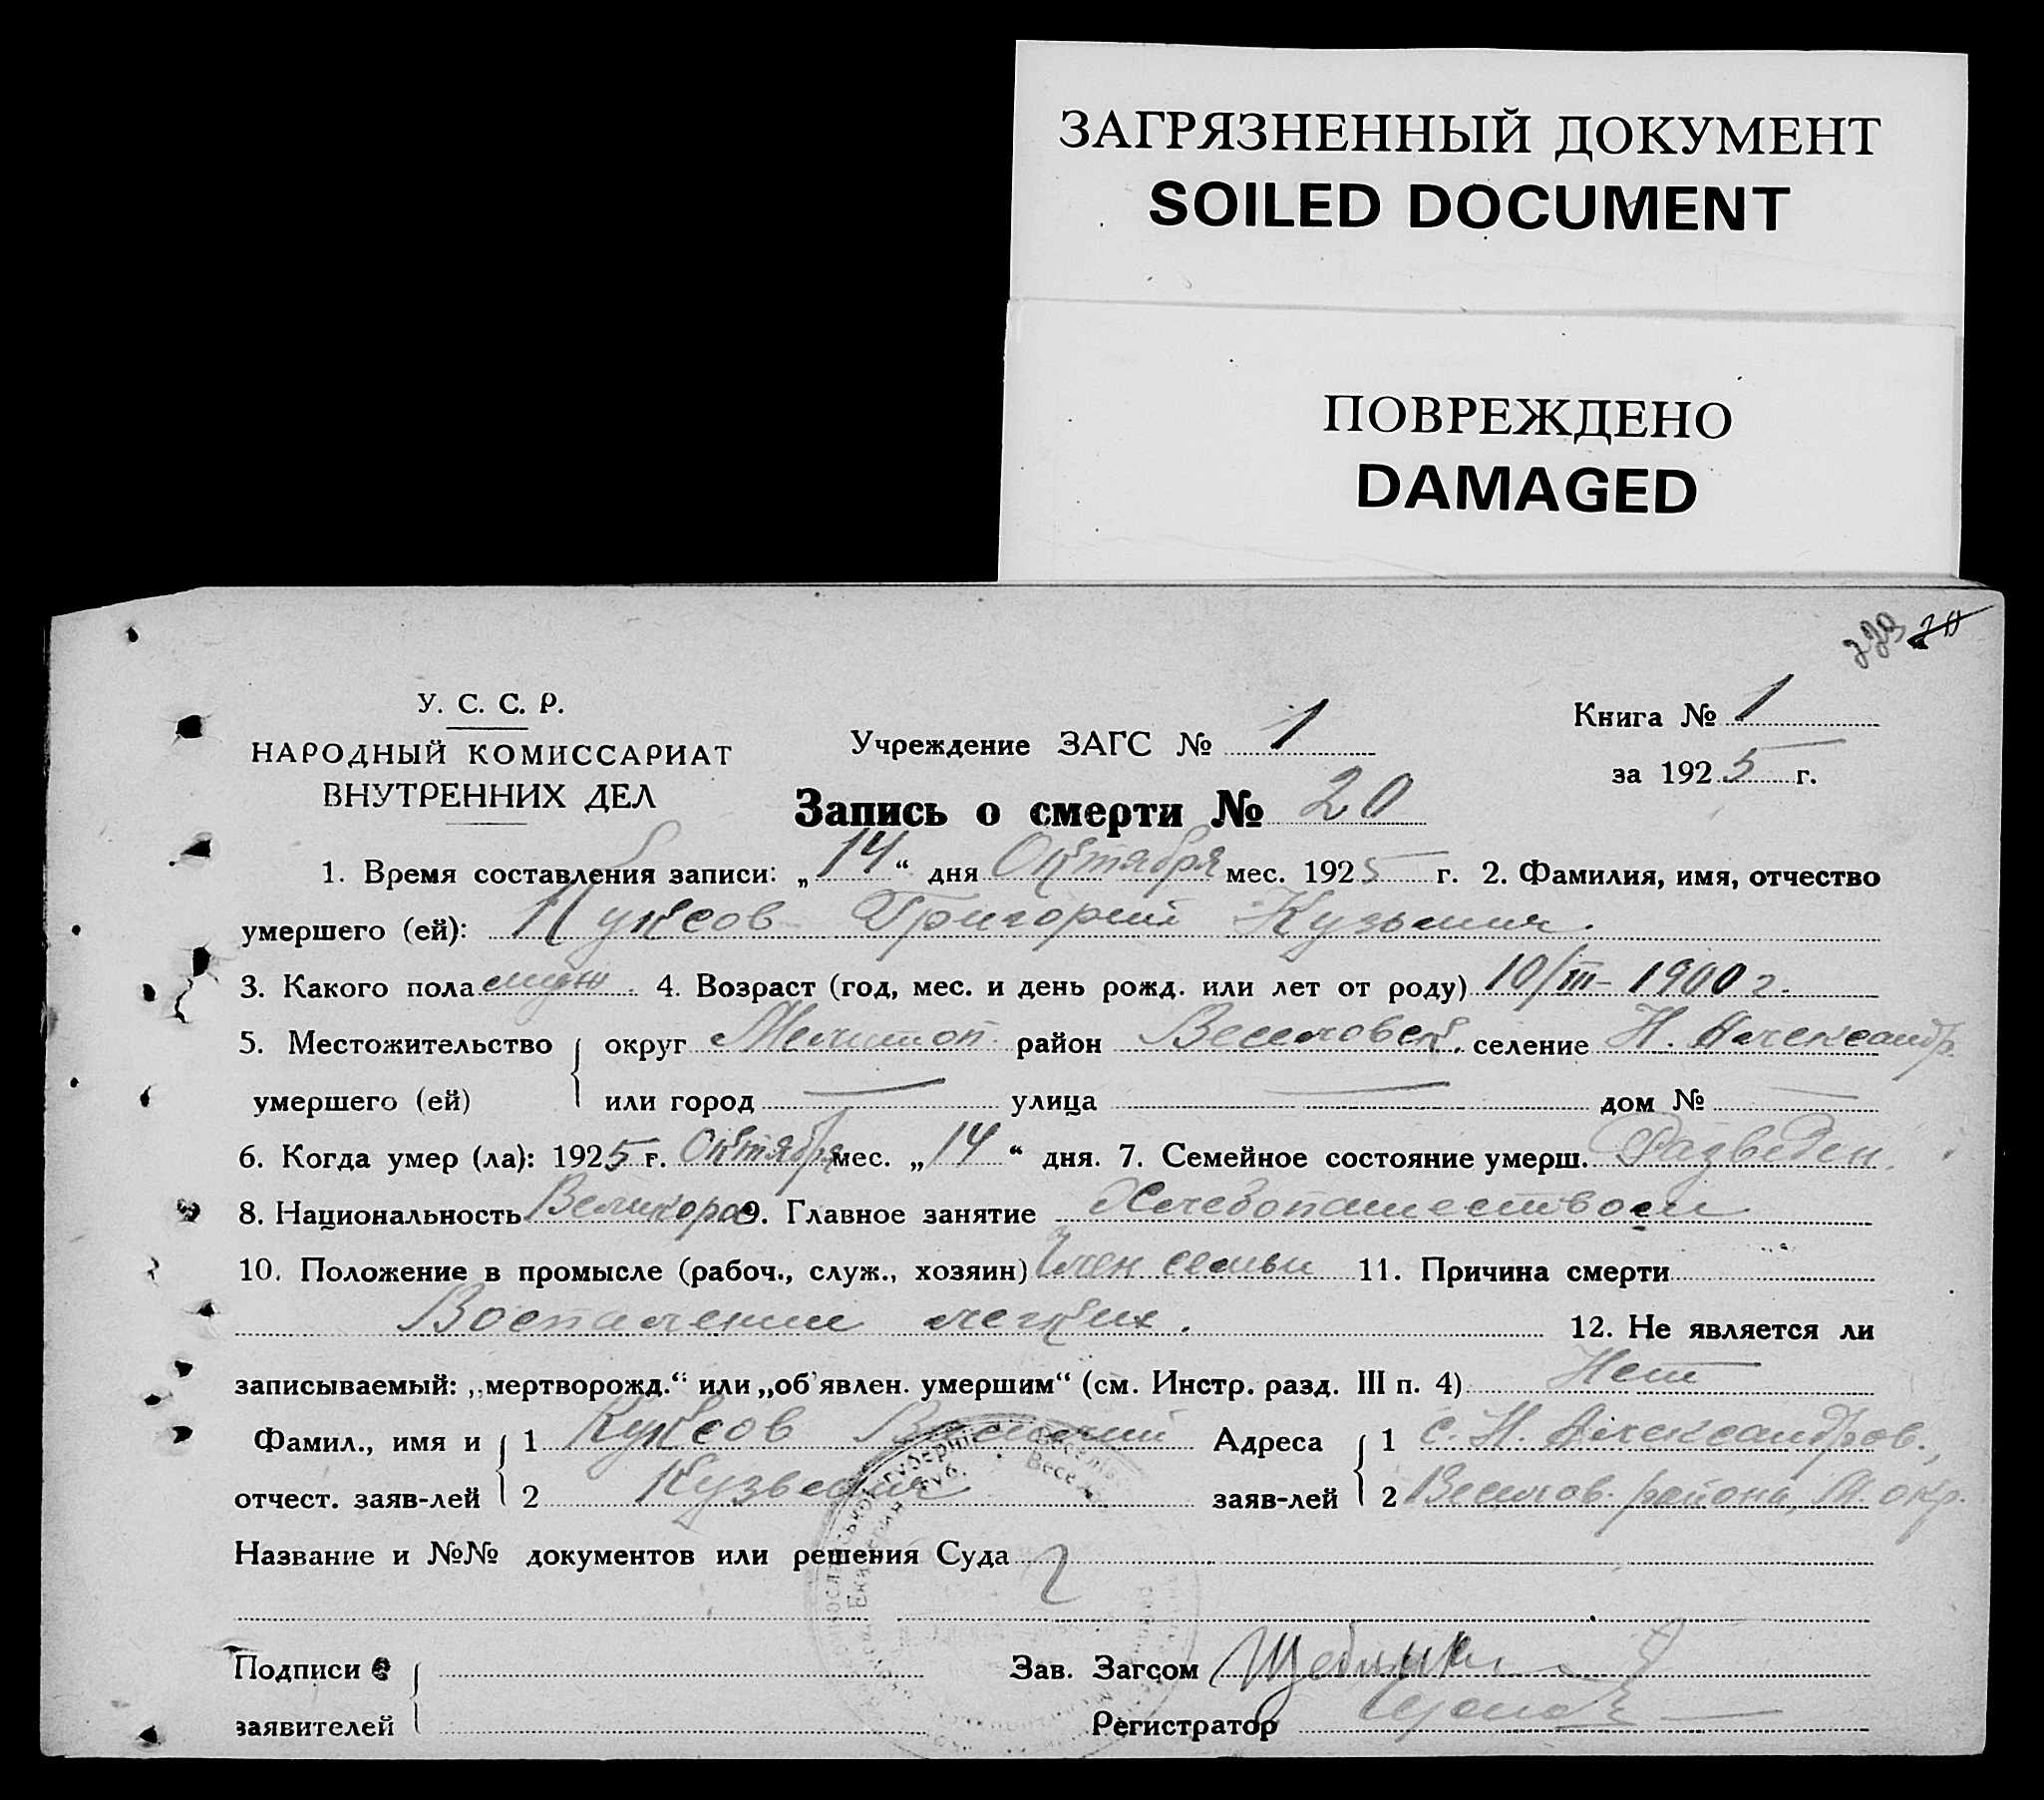 ЗАГРЯЗНЕННЫЙ ДОКУМЕНТ
SOILED DOCUMENT
ПОВРЕЖДЕНО
DAMAGED
20
У. С. С. Р.
НАРОДНЫЙ КОМИССАРИАТ
ВНУТРЕННИХ ДЕЛ
Учреждение ЗАГС № 1
Книга № 1
за 1925 г.
Запись о смерти № 20
1. Время составления записи: „14“ дня Октября мес. 1925 г. 2. Фамилия, имя, отчество
умершего (ей): Куксов Григорий Кузьмич.
3. Какого пола муж. 4. Возраст (год, мес. и день рожд. или лет от роду) 10/III – 1900 г.
5. Местожительство округ Мелитоп. район Веселовск. селение Н. Александр.
умершего (ей) или город — улица — дом № —
6. Когда умер (ла): 1925 г. Октября мес. „14“ дня. 7. Семейное состояние умерш. Разведен.
8. Национальность Великорос 9. Главное занятие Хлебопашеством
10. Положение в промысле (рабоч., служ., хозяин) Член семьи 11. Причина смерти
Воспалении легких.
12. Не является ли
записываемый: „мертворожд.“ или „об’явлен. умершим“ (см. Инстр. разд. III п. 4) Нет
Фамил., имя и 1 Куксов Василий Адреса 1 с. Н. Александров.,
отчест. заяв-лей 2 Кузьмич заяв-лей 2 Веселов. района, М. окр.
Название и №№ документов или решения Суда
Подписи
заявителей
Зав. Загсом
Регистратор